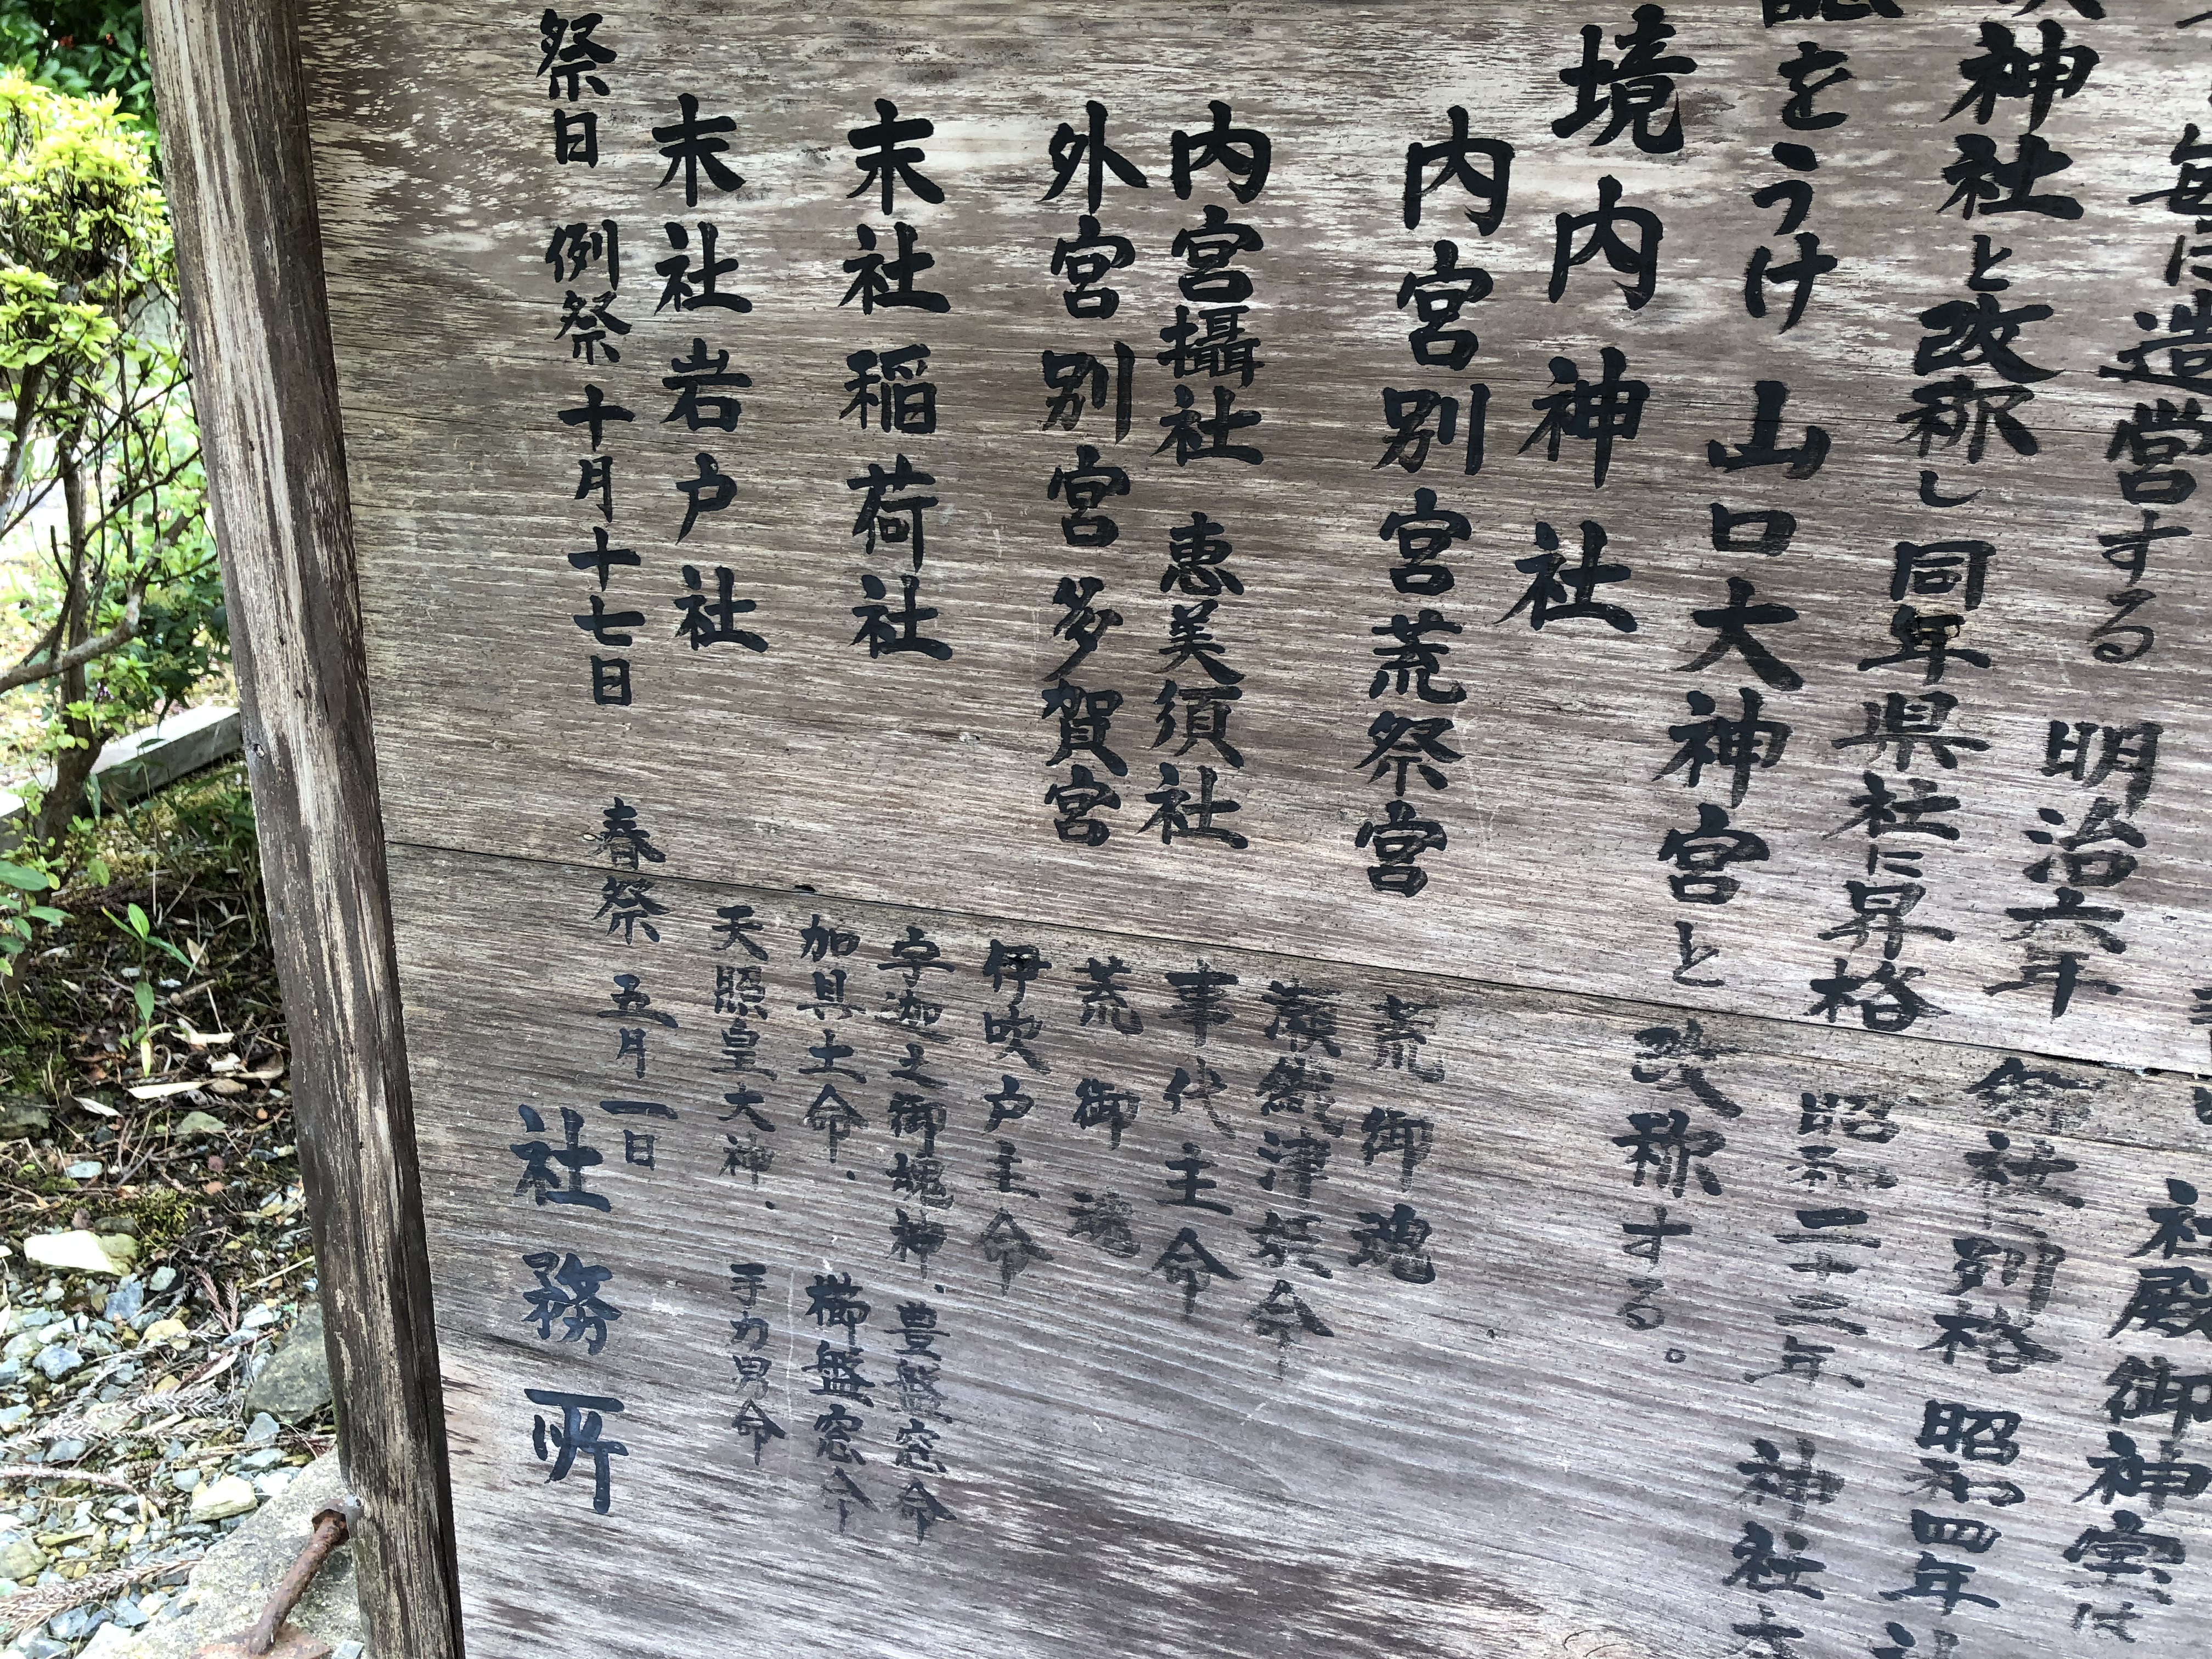 毎に造営する 社殿御神宝は
明治六年
神社と改称し同年県社に昇格 御社に列格 昭和四年
昭和二十三年 神社
をうけ山口大神宮と改称する。
境内神社
内宮別宮荒祭宮 荒御魂
瀬織津姫命
内宮攝社 恵美須社 事代主命
外宮別宮多賀宮 荒御魂
伊吹戸主命
末社稲荷社 宇迦之御魂神、豊盤窓命
加具土命、櫛盤窓命
末社岩戸社 天照皇大神、手力男命
祭日 例祭 十月十七日 春祭 五月一日
社務所